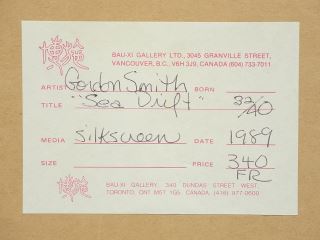 BAU-XI GALLERY LTD., 3045 GRANVILLE STREET,
VANCOUVER, B.C., V6H 3J9, CANADA (604) 733-7011
ARTIST Gordon Smith BORN
TITLE "Sea Drift" 33/40
MEDIA silkscreen DATE 1989
SIZE PRICE 340
FR
BAU-XI GALLERY 340 DUNDAS STREET WEST,
TORONTO, ONT M5T 1G5 CANADA (416) 977-0600